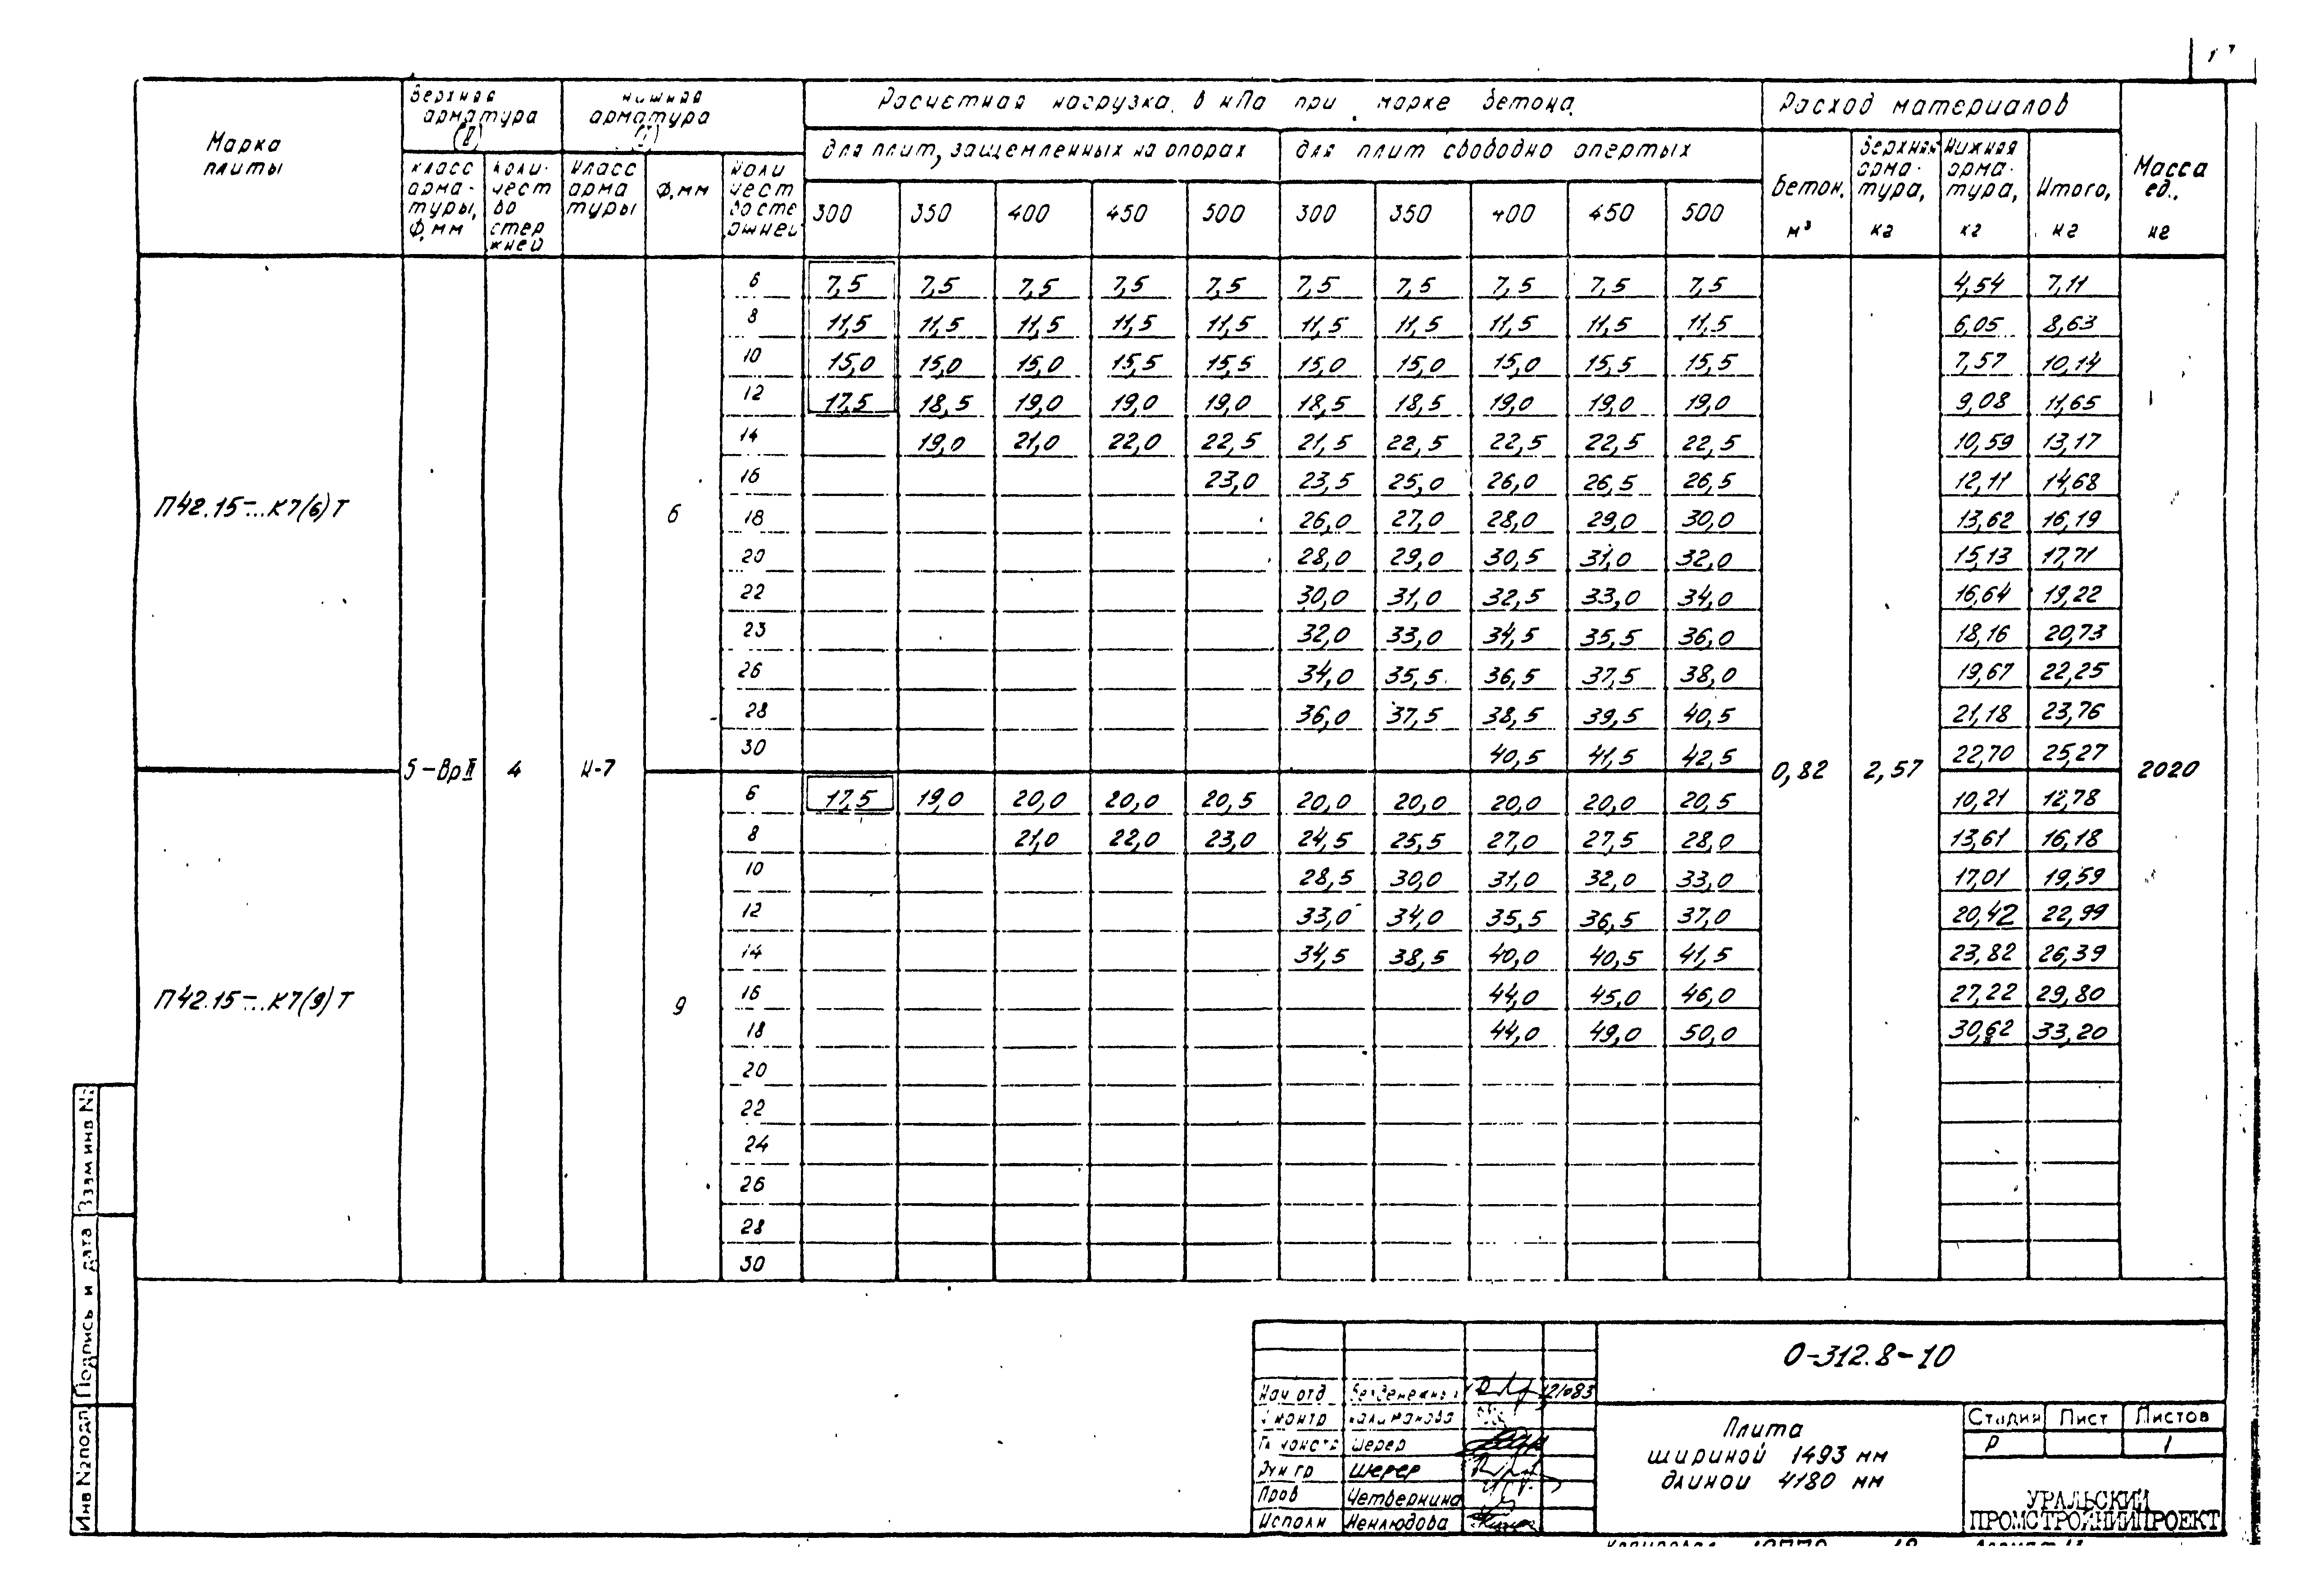 Марка плиты
Верхняя арматура (II)
нижняя арматура (I)
Расчетная нагрузка в кПа при марке бетона
Расход материалов
Масса ед., кг
для плит, защемленных на опорах
для плит свободно опертых
класс арматуры, Ф, мм
количество стержней
Класс арматуры
Ф, мм
Количество стержней
300 350 400 450 500 300 350 400 450 500
Бетон, м³
Верхняя арматура, кг
Нижняя арматура, кг
Итого, кг
П42.15-...К7(6)Т
5-ВрII 4 К-7 6
0,82 2,57 2020
6 7,5 7,5 7,5 7,5 7,5 7,5 7,5 7,5 7,5 7,5 4,54 7,11
8 11,5 11,5 11,5 11,5 11,5 11,5 11,5 11,5 11,5 11,5 6,05 8,63
10 15,0 15,0 15,0 15,5 15,5 15,0 15,0 15,0 15,5 15,5 7,57 10,14
12 17,5 18,5 19,0 19,0 19,0 18,5 18,5 19,0 19,0 19,0 9,08 11,65
14 19,0 21,0 22,0 22,5 21,5 22,5 22,5 22,5 22,5 10,59 13,17
16 23,0 23,5 25,0 26,0 26,5 26,5 12,11 14,68
18 26,0 27,0 28,0 29,0 30,0 13,62 16,19
20 28,0 29,0 30,5 31,0 32,0 15,13 17,71
22 30,0 31,0 32,5 33,0 34,0 16,64 19,22
23 32,0 33,0 34,5 35,5 36,0 18,16 20,73
26 34,0 35,5 36,5 37,5 38,0 19,67 22,25
28 36,0 37,5 38,5 39,5 40,5 21,18 23,76
30 40,5 41,5 42,5 22,70 25,27
П42.15-...К7(9)Т
9
6 17,5 19,0 20,0 20,0 20,5 20,0 20,0 20,0 20,0 20,5 10,21 12,78
8 21,0 22,0 23,0 24,5 25,5 27,0 27,5 28,0 13,61 16,18
10 28,5 30,0 31,0 32,0 33,0 17,01 19,59
12 33,0 34,0 35,5 36,5 37,0 20,42 22,99
14 34,5 38,5 40,0 40,5 41,5 23,82 26,39
16 44,0 45,0 46,0 27,22 29,80
18 44,0 49,0 50,0 30,62 33,20
20
22
24
26
28
30
Взам инв №
Подпись и дата
Инв № подл
О-312.8-10
Нач отд
Н контр
Гл констр Шерер
Рук гр Шерер
Пров Четвернина
Исполн Неклюдова
Плита
шириной 1493 мм
длиной 4180 мм
Стадия Лист Листов
Р 1
УРАЛЬСКИЙ
ПРОМСТРОЙНИИПРОЕКТ